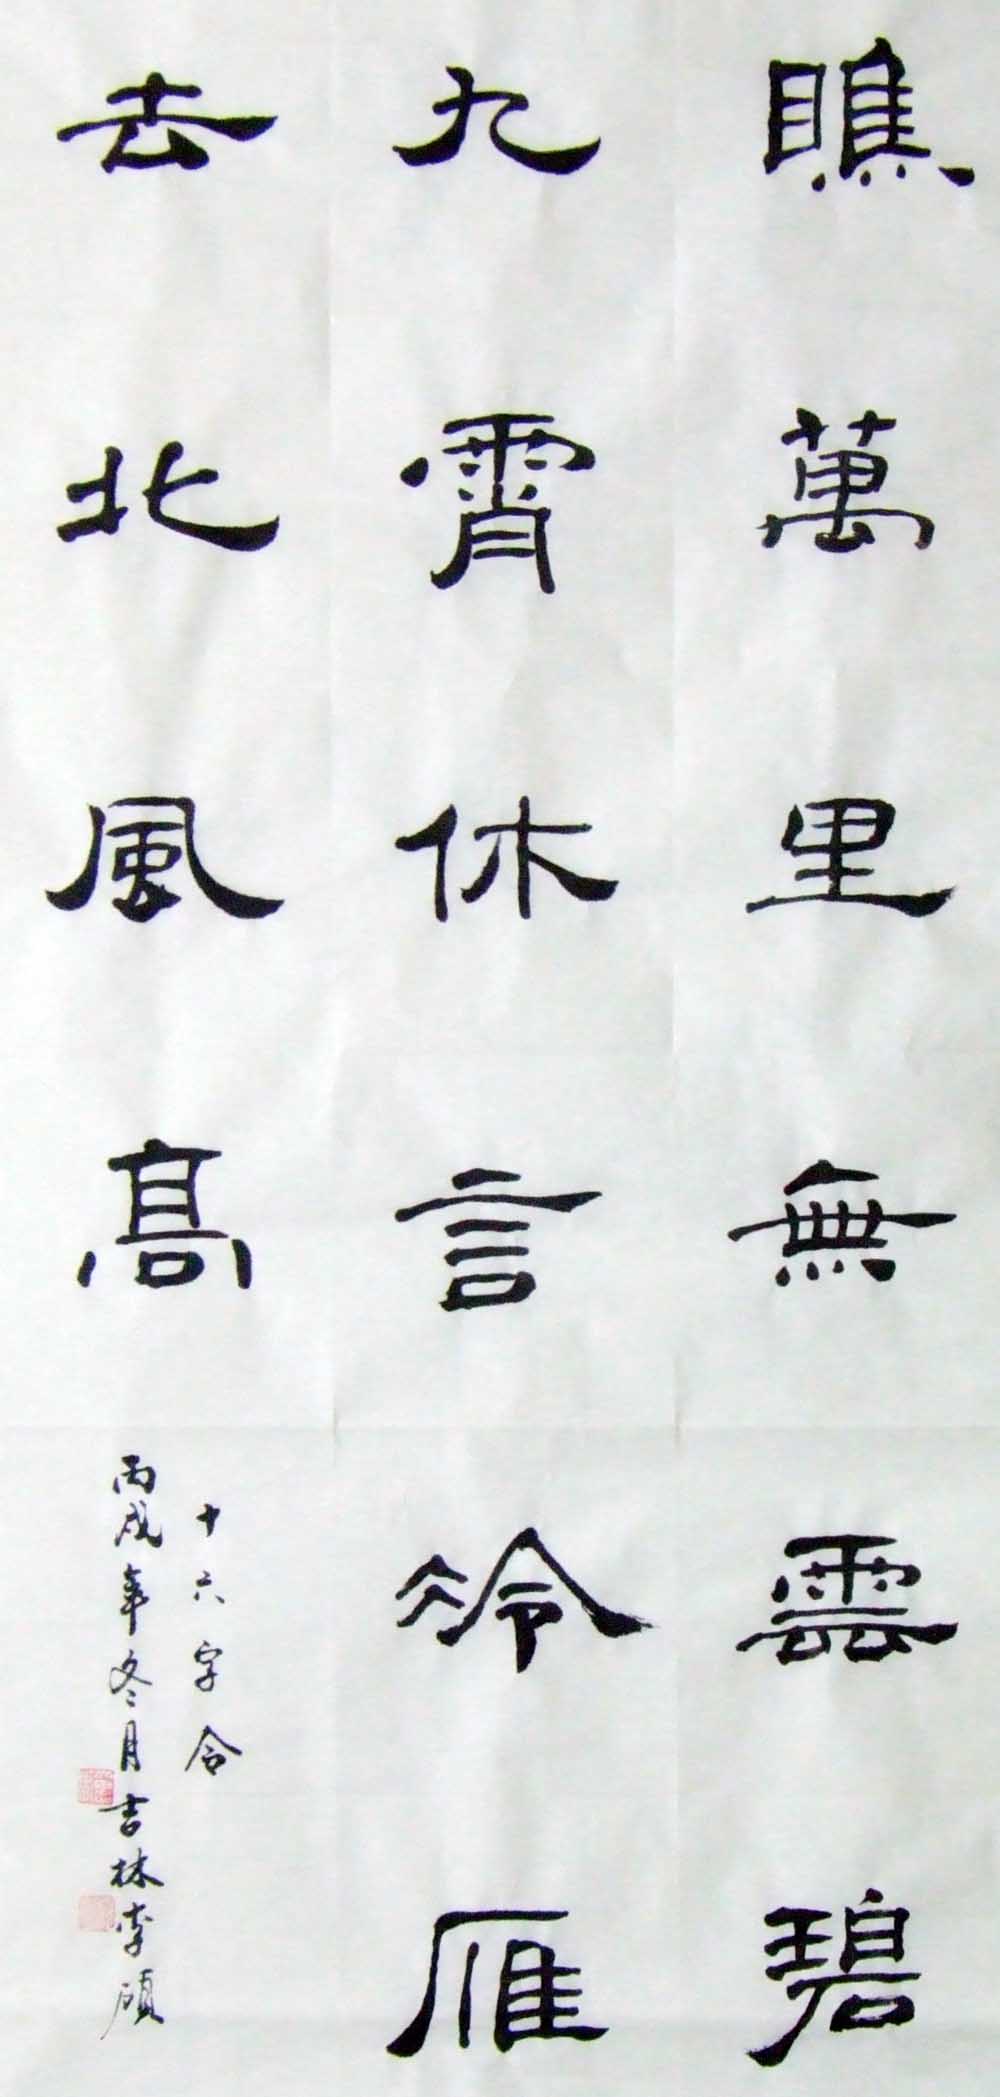 瞧萬里無雲碧
九霄休言冷雁
去北風高
十六字令
丙戌年冬月吉林李碩